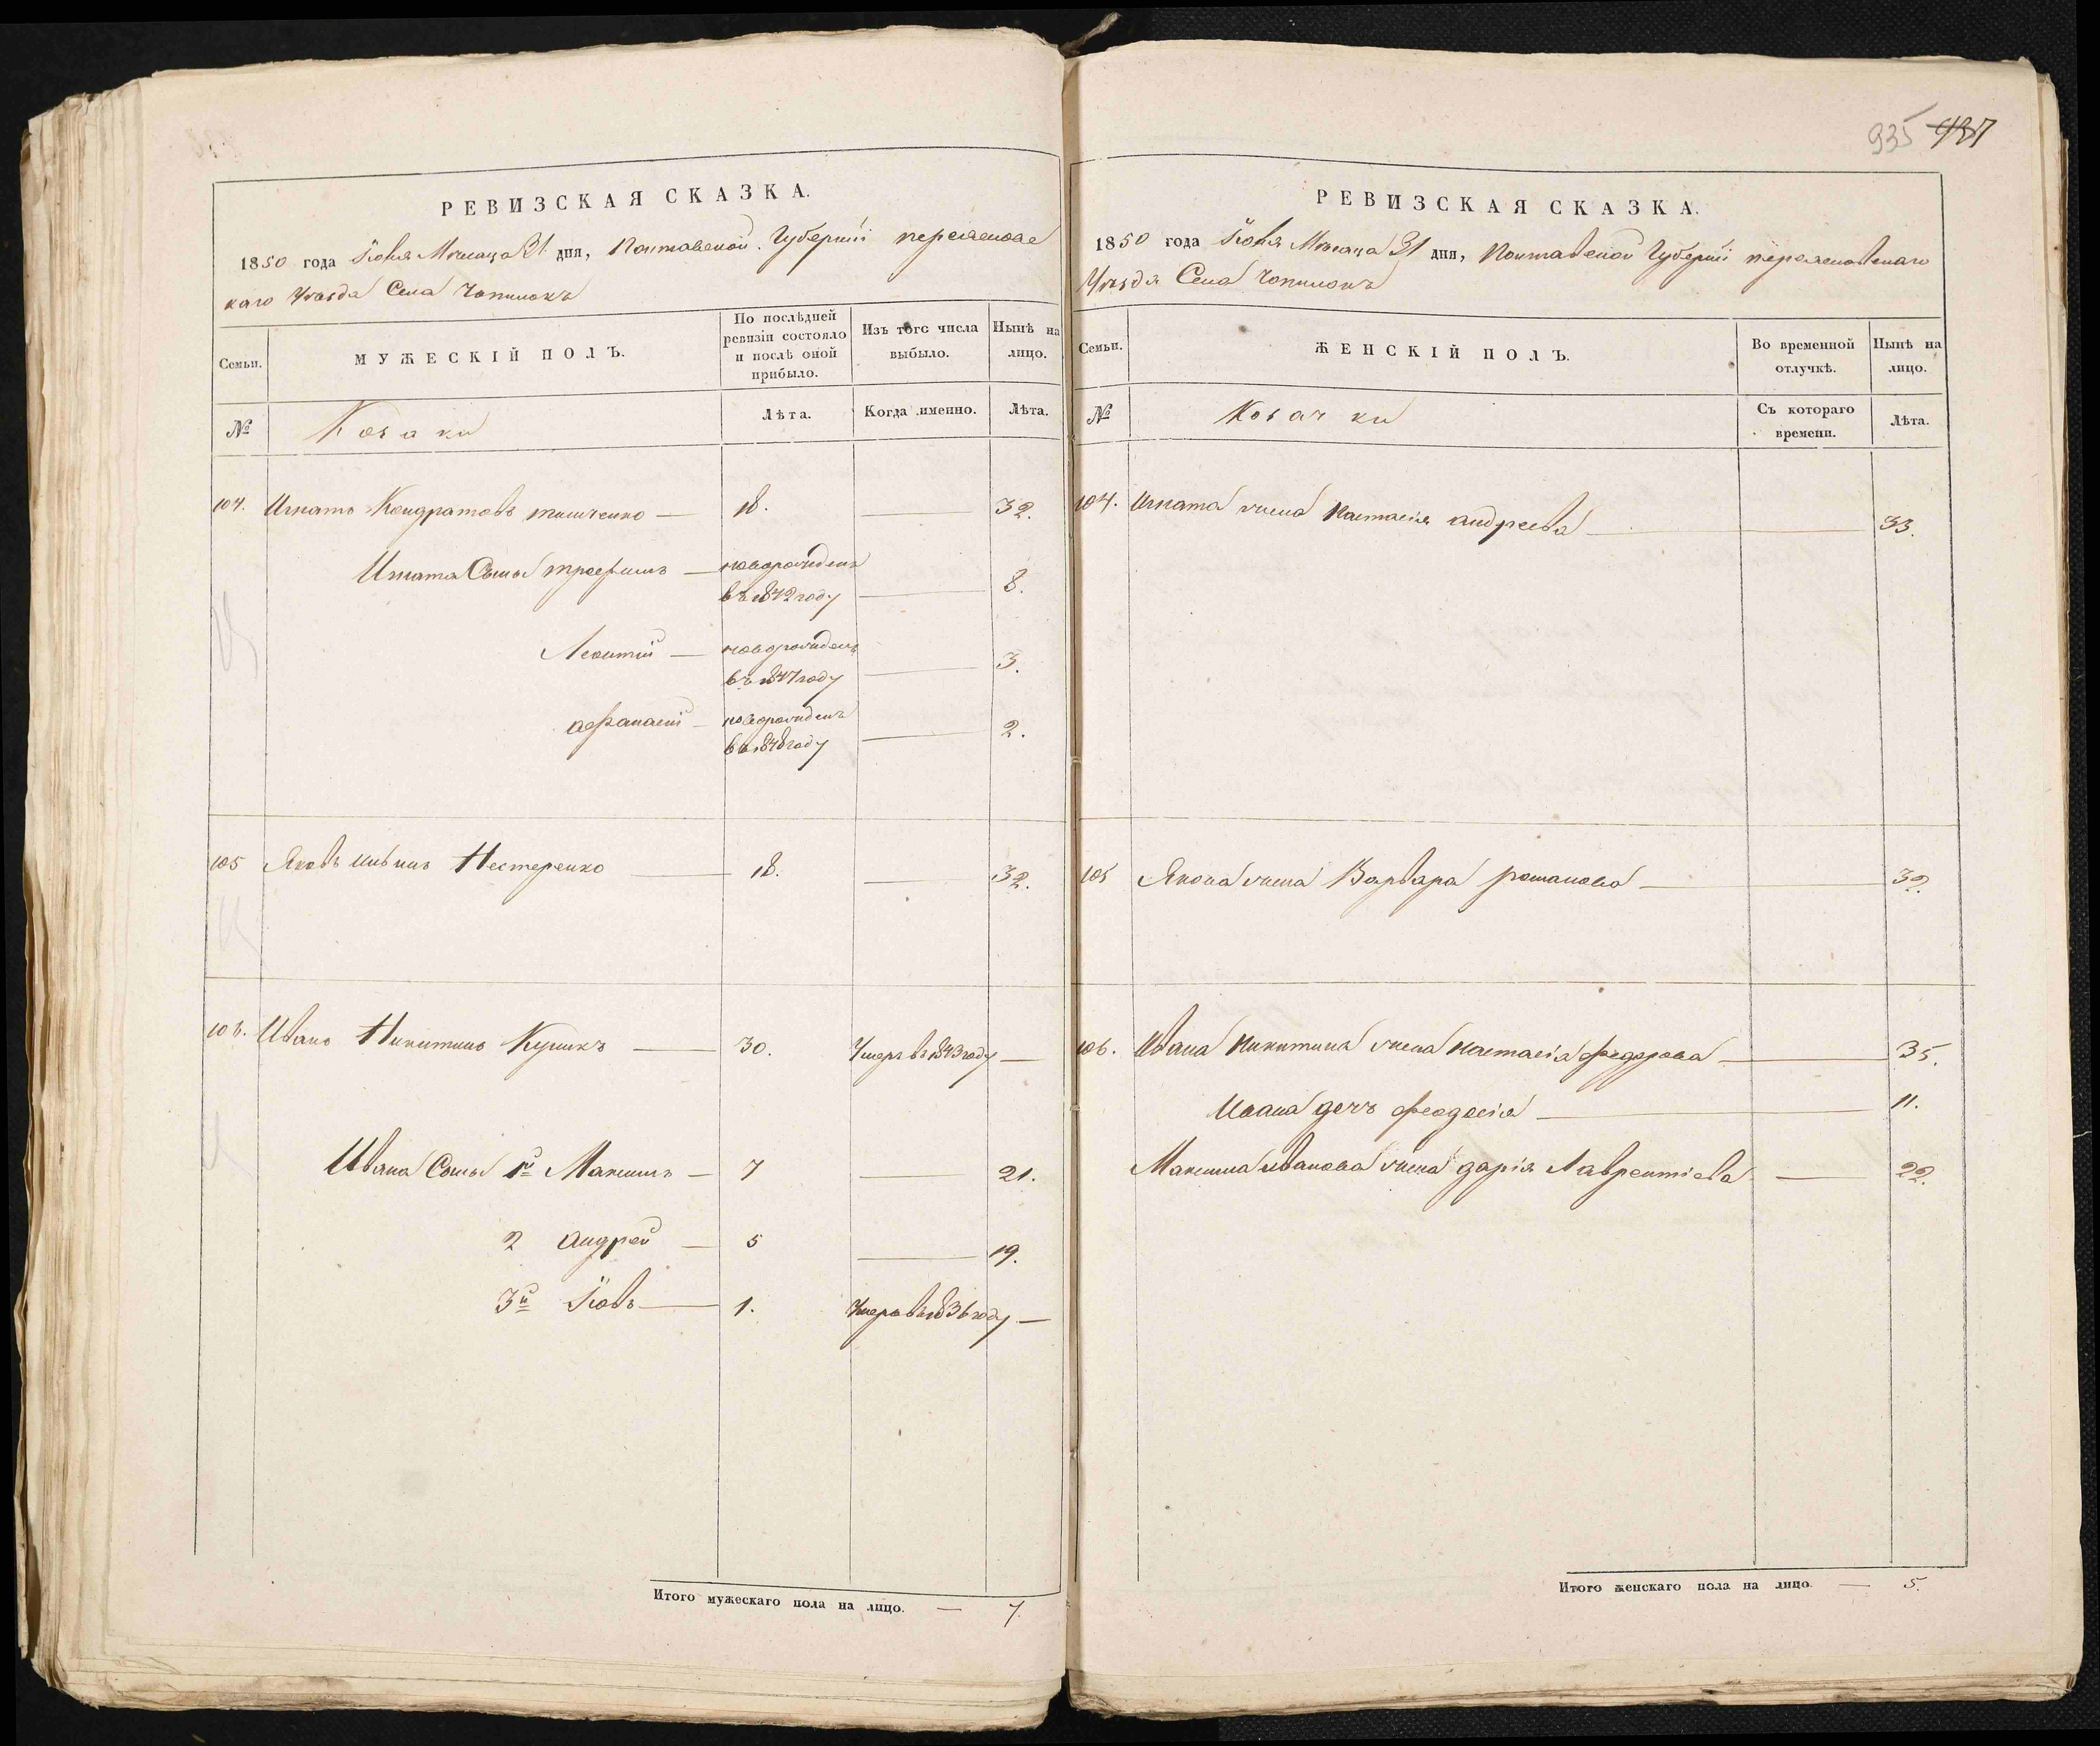 РЕВИЗСКАЯ СКАЗКА.
1850 года Іюля Мѣсяца 31 дня, Полтавской Губерніи переяславс
каго Уѣзда Села Чопилокъ
Семьи.
МУЖЕСКІЙ ПОЛЪ.
По послѣдней ревизіи состояло и послѣ оной прибыло.
Изъ того числа выбыло.
Нынѣ на лицо.
№
Козаки
Лѣта.
Когда именно.
Лѣта.
104. Игнатъ Кондратовъ — 18. — 32.
Игната Сынъ трофимъ — новорожденъ
въ 1842 году — 8.
Леонтій — новорожденъ
въ 1847 году — 3.
афанасій — новорожденъ
въ 1848 году — 2.
105 Яковъ Нестеренко — 18. — 32.
106. Иванъ Никитинъ Куликъ — 30. Умеръ въ 1843 году —
Ивана Сыны 1й Максимъ — 7 — 21.
2 андрей — 5 — 19.
3й Іовъ — 1. Умеръ въ 1836 году —
Итого мужескаго пола на лицо. — 7.
935 437
РЕВИЗСКАЯ СКАЗКА.
1850 года Іюля Мѣсяца 31 дня, Полтавской Губерніи переясловскаго
Уѣзда Села Чопилокъ
Семьи.
ЖЕНСКІЙ ПОЛЪ.
Во временной отлучкѣ.
Нынѣ на лицо.
№
Козачки
Съ котораго времени.
Лѣта.
104. Игната жена Настасія андреева — 33.
105 Якова жена Варвара романова — 32.
106. Ивана Никитина жена настасія федорова — 35.
Ивана дочъ феодосія — 11.
Максима иванова жена дарія Лаврентіева — 22.
Итого женскаго пола на лицо. — 5.